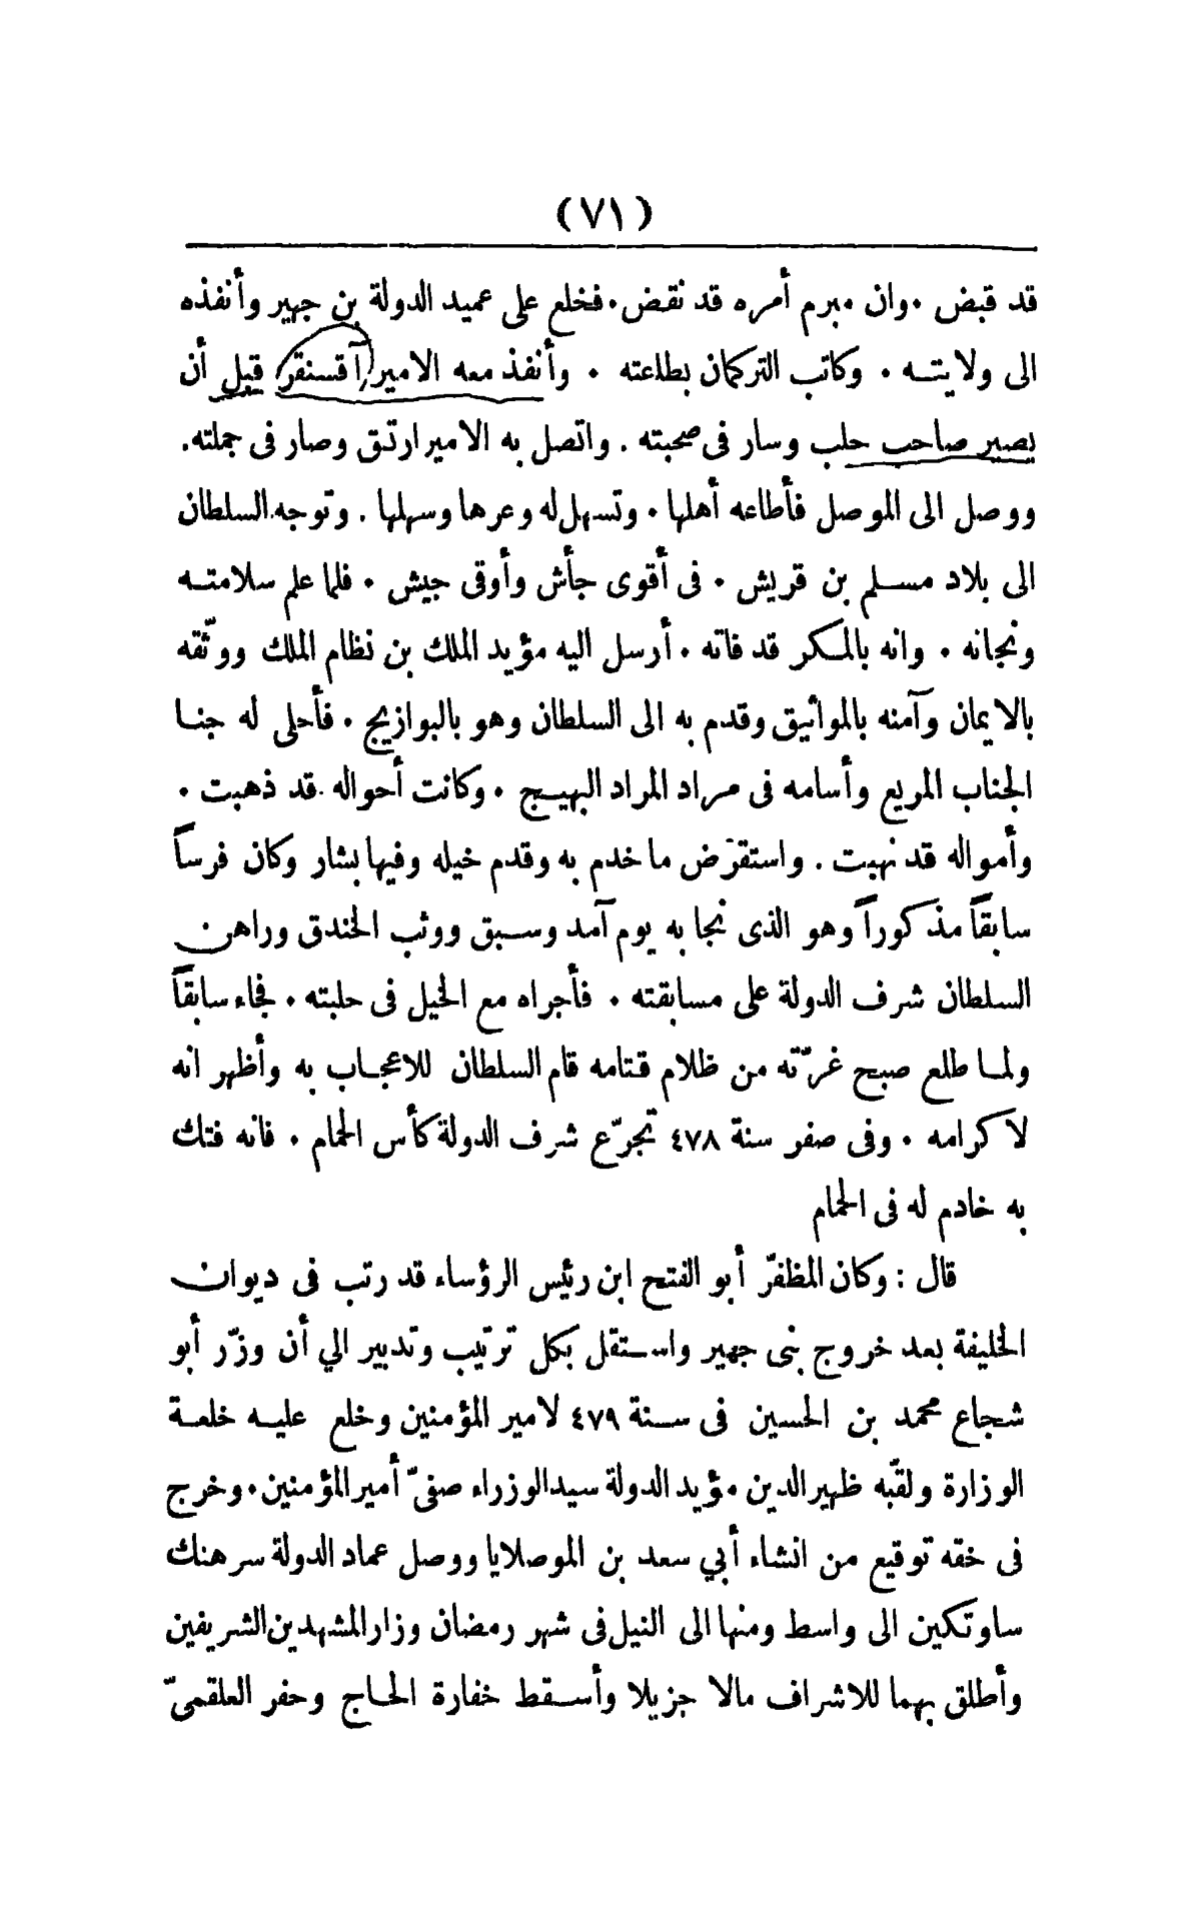 (٧١)
قد قبض ٠ وان مبرم أمره قد نقض ٠ فخلع على عميد الدولة بن جهير وأنفذه
الى ولايتـه ٠ وكاتب التركمان بطاعته ٠ وأنفذ معه الامير آقسنقر قبل أن
يصير صاحب حلب وسار فى صحبته . واتصل به الامير ارتـق وصار فى جملته.
ووصل الى الموصل فأطاعه أهلها ٠ وتسهل له وعرها وسهلها . وتوجه السلطان
الى بلاد مسـلم بن قريش ٠ فى أقوى جأش وأوقى جيش ٠ فلما علم سلامتـه
ونجاته ٠ وانه بالمـكر قد فاته ٠ أرسل اليه مؤيد الملك بن نظام الملك ووثّقه
بالايمان وآمنه بالمواثيق وقدم به الى السلطان وهو بالبوازيج ٠ فأحلى له جنـا
الجناب المريع وأسامه فى مراد المراد البهيـج ٠ وكانت أحواله قد ذهبت ٠
وأمواله قد نهبت . واستقرَض ما خدم به وقدم خيله وفيها بشار وكان فرساً
سابقاً مذكوراً وهو الذى نجا به يوم آمد وسـبق ووثب الخندق وراهن
السلطان شرف الدولة على مسابقته ٠ فأجراه مع الخيل فى حلبته ٠ فجاء سابقاً
ولمـا طلع صبح غرّته من ظلام قتامه قام السلطان للاعجـاب به وأظهر انه
لاكرامه ٠ وفى صفر سنة ٤٧٨ تجرّع شرف الدولة كأس الحمام ٠ فانه فتك
به خادم له فى الحمام
قال : وكان المظفّر أبو الفتح ابن رئيس الرؤساء قد رتب فى ديوان
الخليفة بعد خروج بنى جهير واسـتقل بكل ترتيب وتدبير الي أن وزّر أبو
شجاع محمد بن الحسين فى سـنة ٤٧٩ لامير المؤمنين وخلع عليـه خلعـة
الوزارة ولقّبه ظهير الدين مؤيد الدولة سيد الوزراء صفىّ أمير المؤمنين ٠ وخرج
فى حقه توقيع من انشاء أبي سعد بن الموصلايا ووصل عماد الدولة سرهنك
ساوتكين الى واسط ومنها الى النيل فى شهر رمضان وزار المشهدين الشريفين
وأطلق بهما للاشراف مالا جزيلا وأسـقط خفارة الحـاج وحفر العلقمىّ